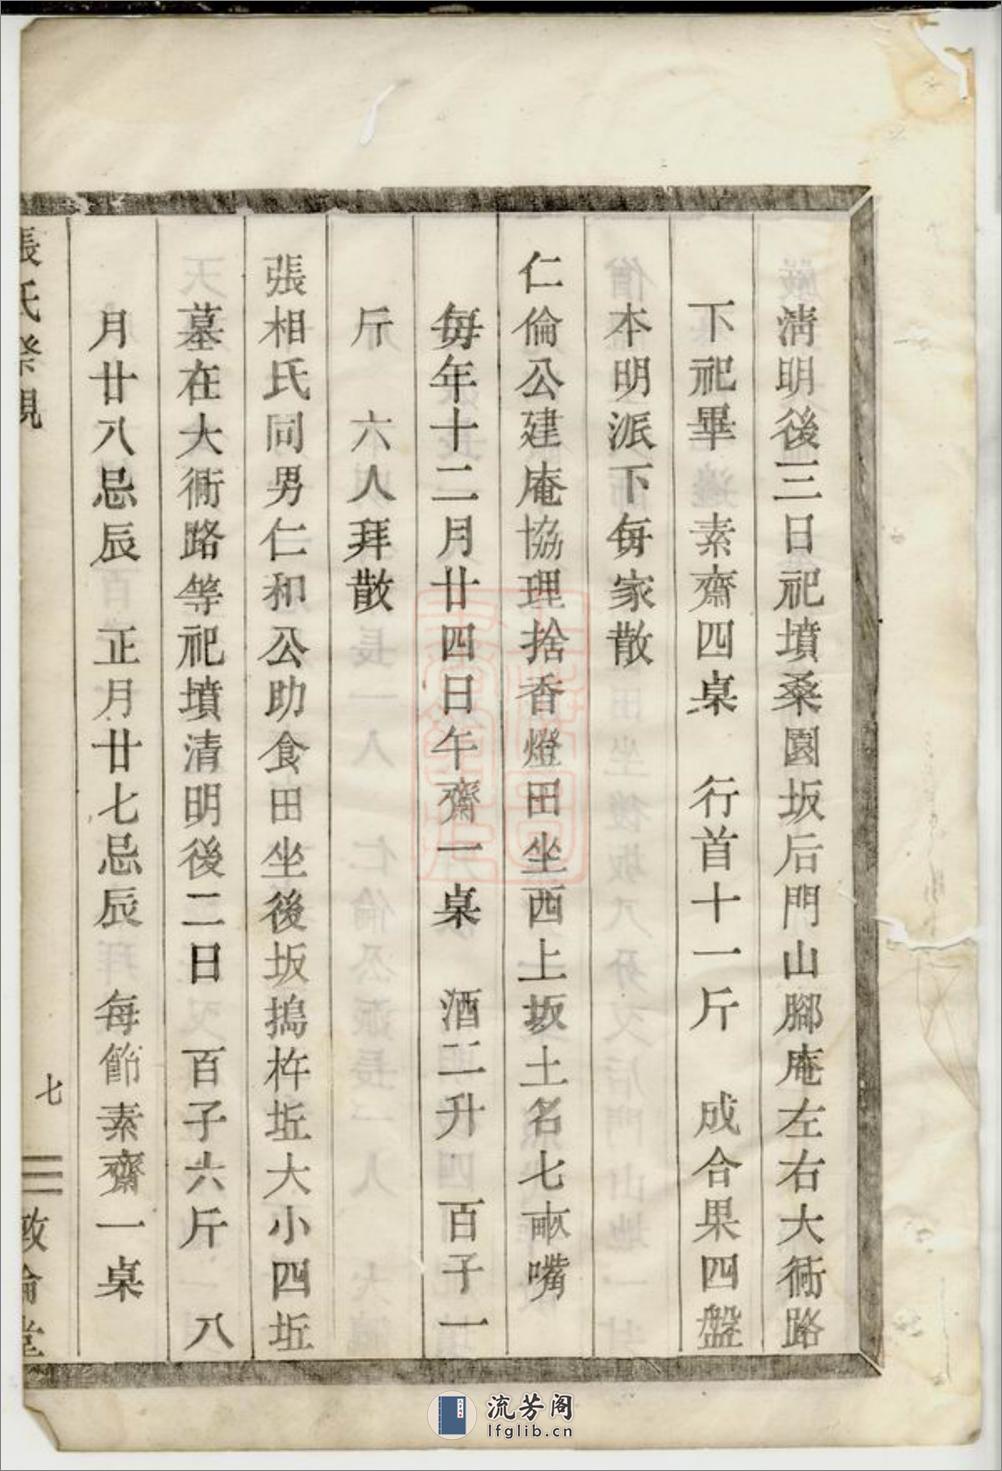 清明後三日祀墳桑園坂后門山腳庵左右大衕路
下祀畢　素齋四桌　行首十一斤　成合果四盤
本明派下每家散
仁倫公建庵協理捨香燈田坐西上坂土名七畝嘴
每年十二月廿四日午齋一桌　酒二升　百子一
斤　六人拜散
張相氏同男仁和公助食田坐後坂搗杵坵大小四坵
墓在大衕路等祀墳清明後二日　百子六斤　八
月廿八忌辰　正月廿七忌辰　每節素齋一桌
張氏祭規
七
敦倫堂
流芳阁
lfglib.cn